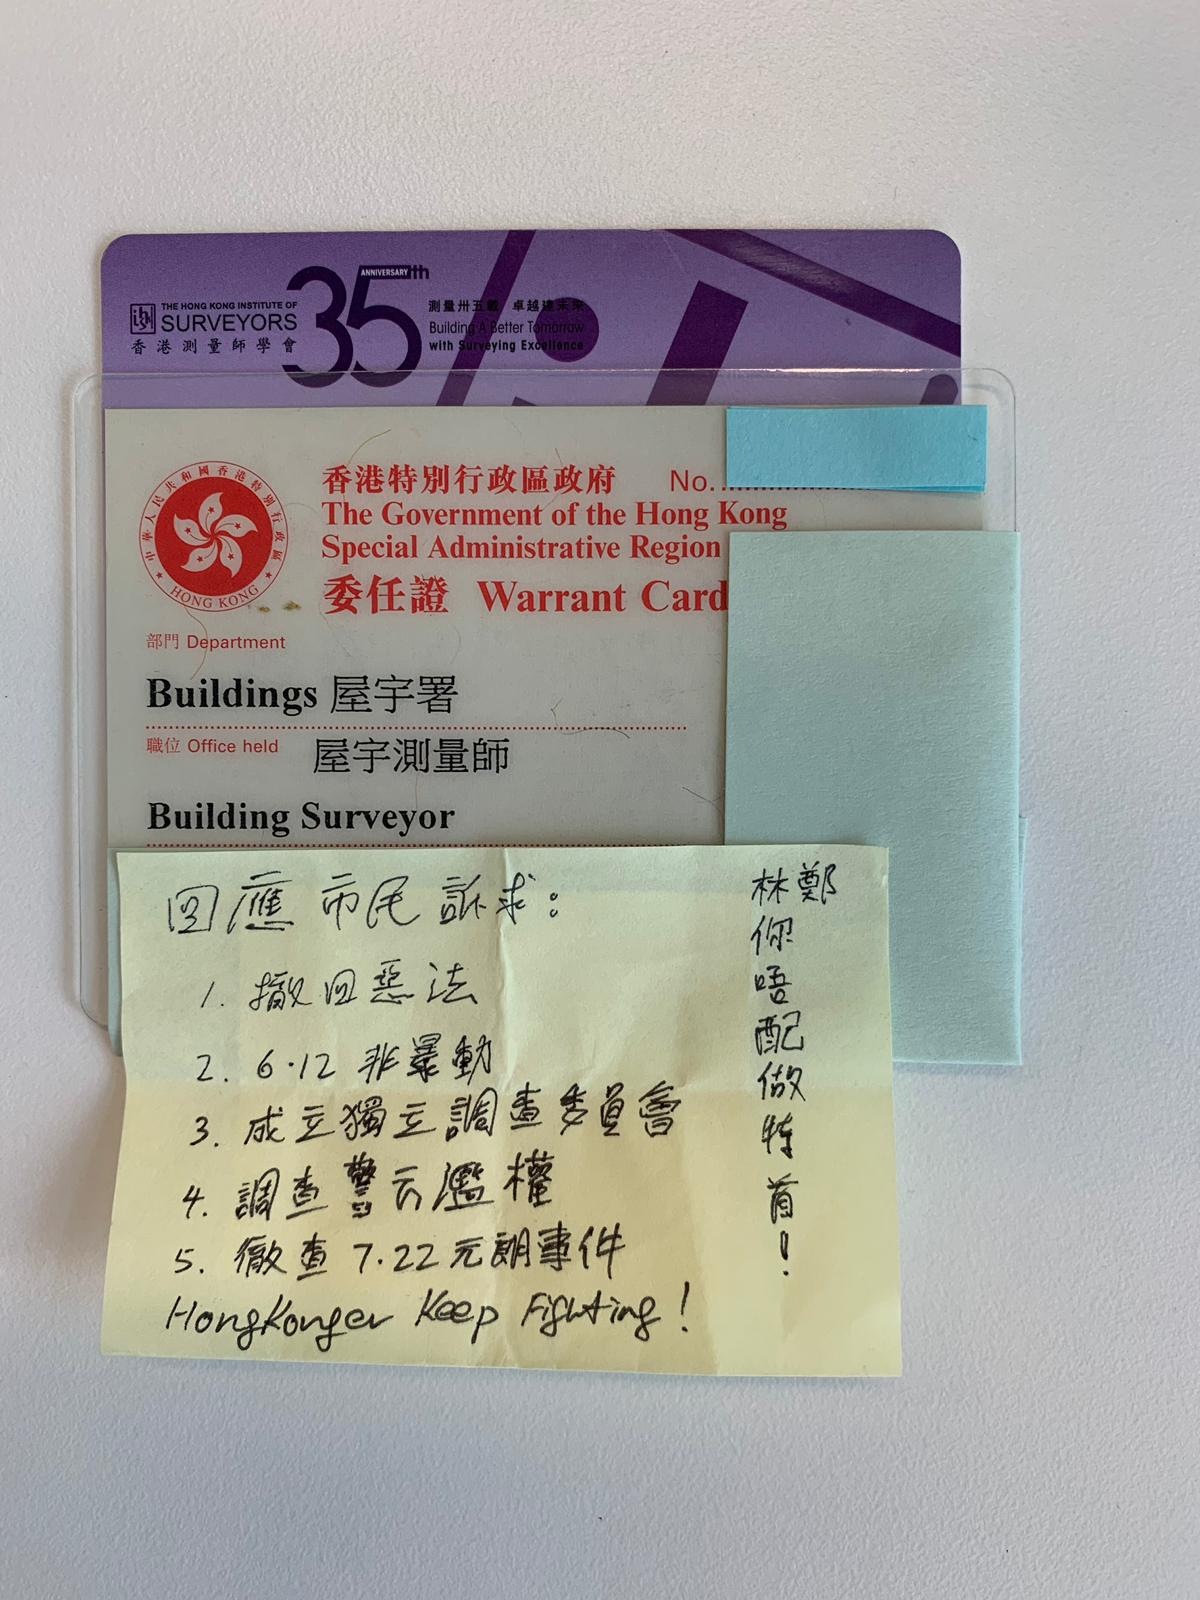 THE HONG KONG INSTITUTE OF
SURVEYORS
香港測量師學會
35th
ANNERSARY
測量卅五載 卓越建未來
Building A Better Tomorrow
with Surveying Excellence
中華人民共和國香港特別行政區
HONG KONG
香港特別行政區政府 No.
The Government of the Hong Kong
Special Administrative Region
委任證 Warrant Card
部門 Department
Buildings 屋宇署
職位 Office held 屋宇測量師
Building Surveyor
回應市民訴求：
1. 撤回惡法
2. 6.12 非暴動
3. 成立獨立調查委員會
4. 調查警云濫權
5. 徹查 7.22 元朗事件
HongKonger Keep Fighting!
林鄭
你
唔
配
做
特
首
！